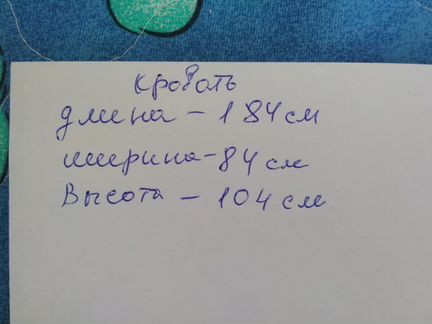 кровать
длина - 184 см
ширина - 84 см
Высота - 104 см